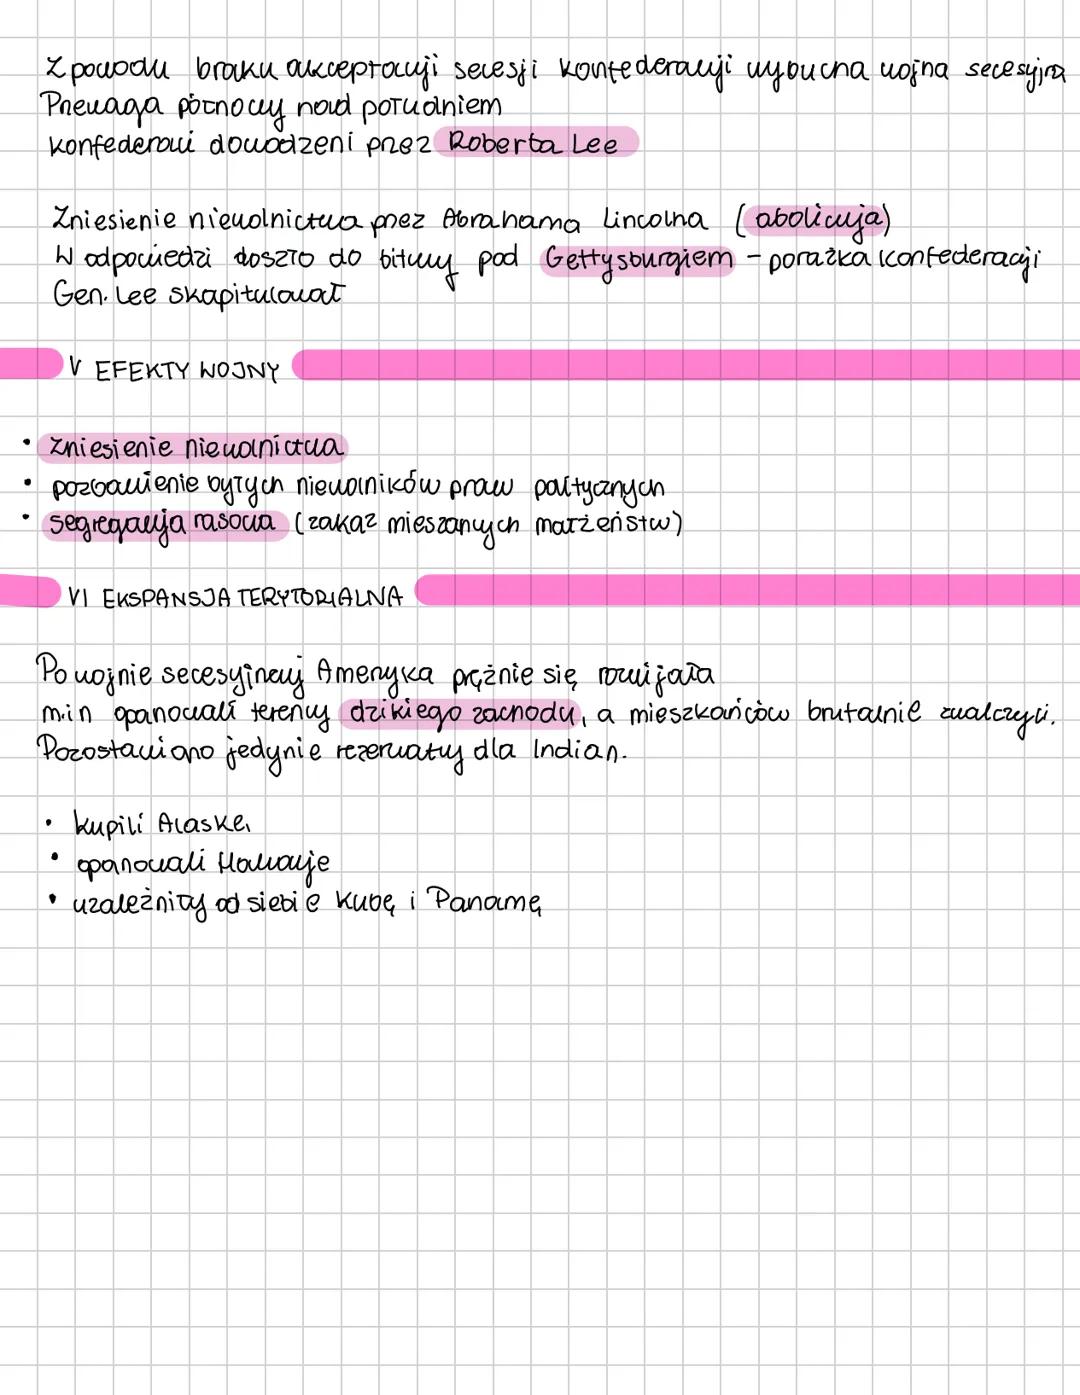 Z powodu braku akceptacji secesji konfederacji wybucha wojna secesyjna
Przewaga północy nad południem
konfederaci dowodzeni przez Roberta Lee
Zniesienie niewolnictwa przez Abrahama Lincolna (abolicja)
W odpowiedzi doszło do bitwy pod Gettysburgiem - porażka konfederacji
Gen. Lee skapitulował
V EFEKTY WOJNY
• zniesienie niewolnictwa
• pozbawienie byłych niewolników praw politycznych
• segregacja rasowa (zakaz mieszanych małżeństw)
VI EKSPANSJA TERYTORIALNA
Po wojnie secesyjnej Ameryka prężnie się rozwijała
m.in opanowali tereny dzikiego zachodu, a mieszkańców brutalnie zwalczyli.
Pozostawiono jedynie rezerwaty dla Indian.
• kupili Alaskę
• opanowali Hawaje
• uzależniły od siebie Kubę i Panamę